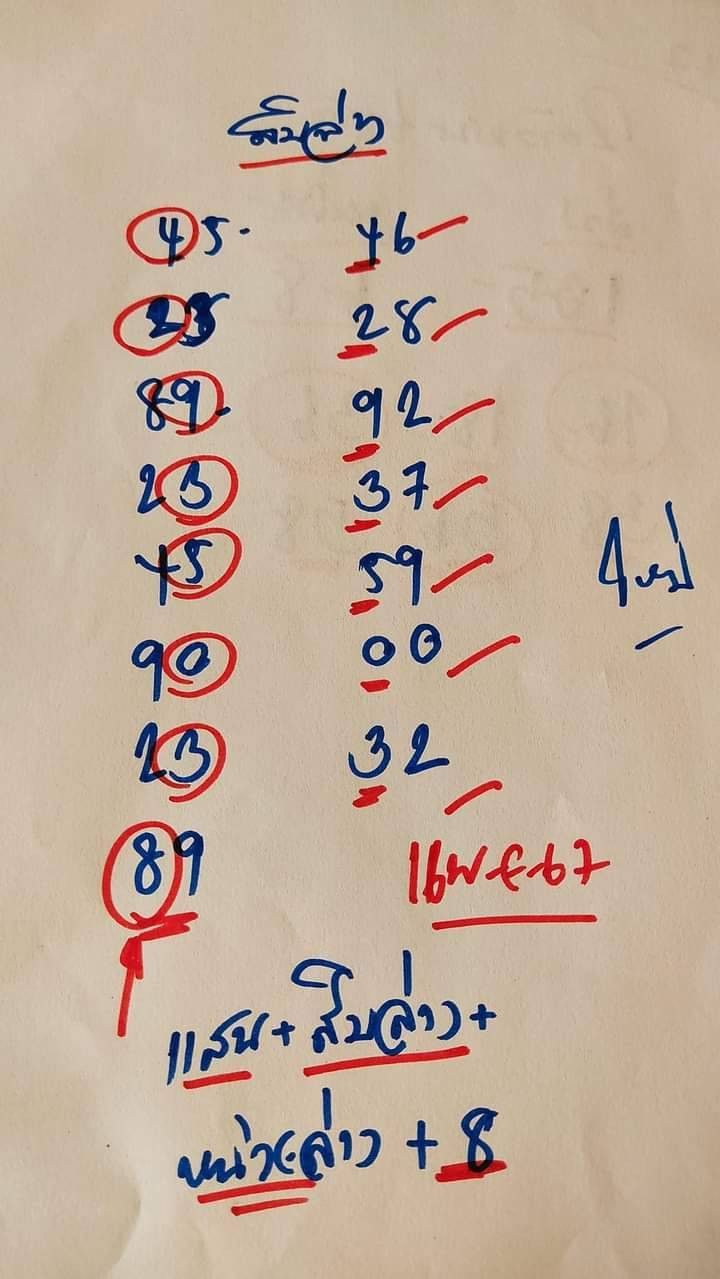 สิบล่าง
45. 46
23 28
89. 92
23 37
45 59
90 00
23 32
89
16 พ.ค. 67
แสน + สิบล่าง +
หน่วยล่าง + 8